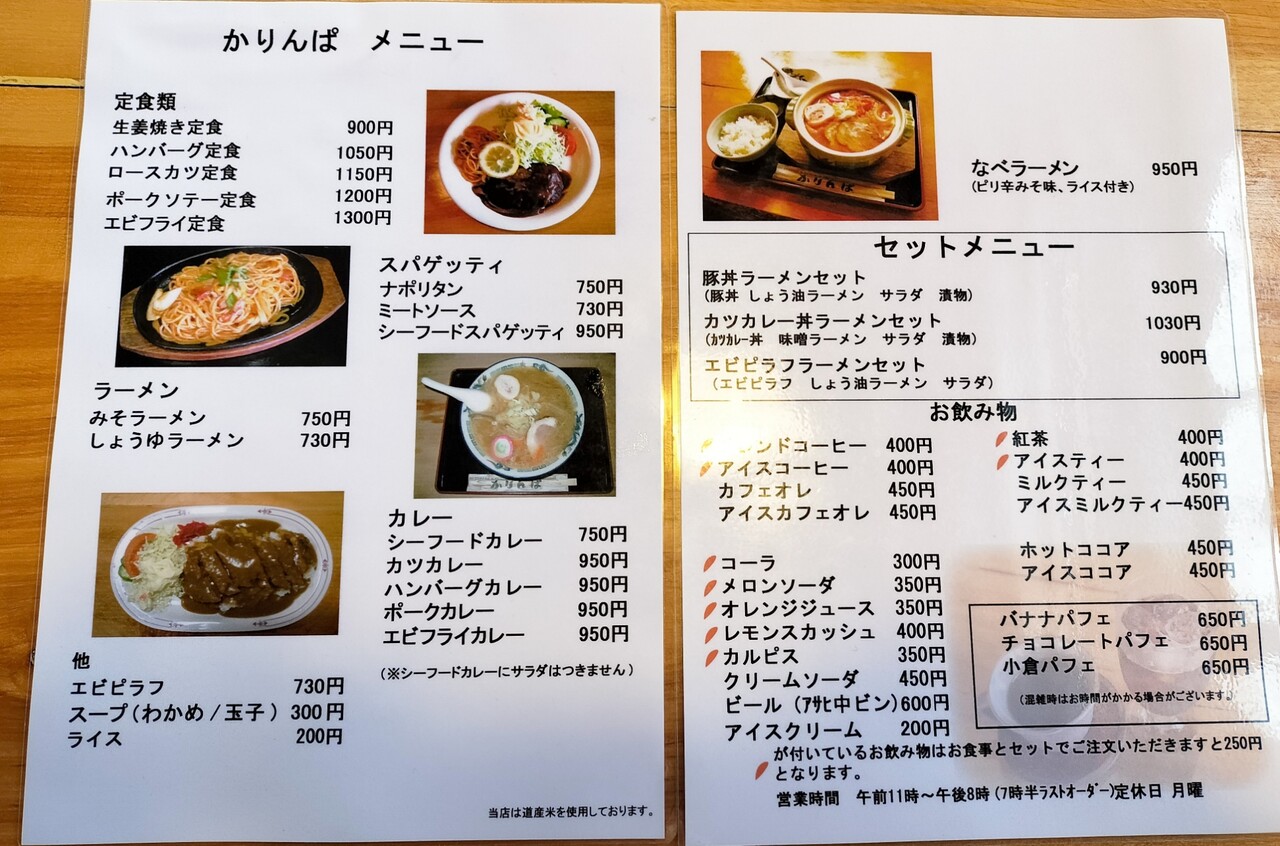 かりんぱ メニュー
定食類
生姜焼き定食 900円
ハンバーグ定食 1050円
ロースカツ定食 1150円
ポークソテー定食 1200円
エビフライ定食 1300円
スパゲッティ
ナポリタン 750円
ミートソース 730円
シーフードスパゲッティ 950円
ラーメン
みそラーメン 750円
しょうゆラーメン 730円
かりんぱ
カレー
シーフードカレー 750円
カツカレー 950円
ハンバーグカレー 950円
ポークカレー 950円
エビフライカレー 950円
(※シーフードカレーにサラダはつきません)
他
エビピラフ 730円
スープ(わかめ/玉子) 300円
ライス 200円
当店は道産米を使用しております。
かりんぱ
なべラーメン 950円
(ピリ辛みそ味、ライス付き)
セットメニュー
豚丼ラーメンセット 930円
(豚丼 しょう油ラーメン サラダ 漬物)
カツカレー丼ラーメンセット 1030円
(ｶﾂｶﾚｰ丼 味噌ラーメン サラダ 漬物)
エビピラフラーメンセット 900円
(エビピラフ しょう油ラーメン サラダ)
お飲み物
ンドコーヒー 400円
アイスコーヒー 400円
カフェオレ 450円
アイスカフェオレ 450円
紅茶 400円
アイスティー 400円
ミルクティー 450円
アイスミルクティー 450円
ホットココア 450円
アイスココア 450円
コーラ 300円
メロンソーダ 350円
オレンジジュース 350円
レモンスカッシュ 400円
カルピス 350円
クリームソーダ 450円
ビール (ｱｻﾋ中ビン) 600円
アイスクリーム 200円
バナナパフェ 650円
チョコレートパフェ 650円
小倉パフェ 650円
(混雑時はお時間がかかる場合がございます。)
が付いているお飲み物はお食事とセットでご注文いただきますと250円
となります。
営業時間 午前11時～午後8時 (7時半ﾗｽﾄｵｰﾀﾞｰ)定休日 月曜